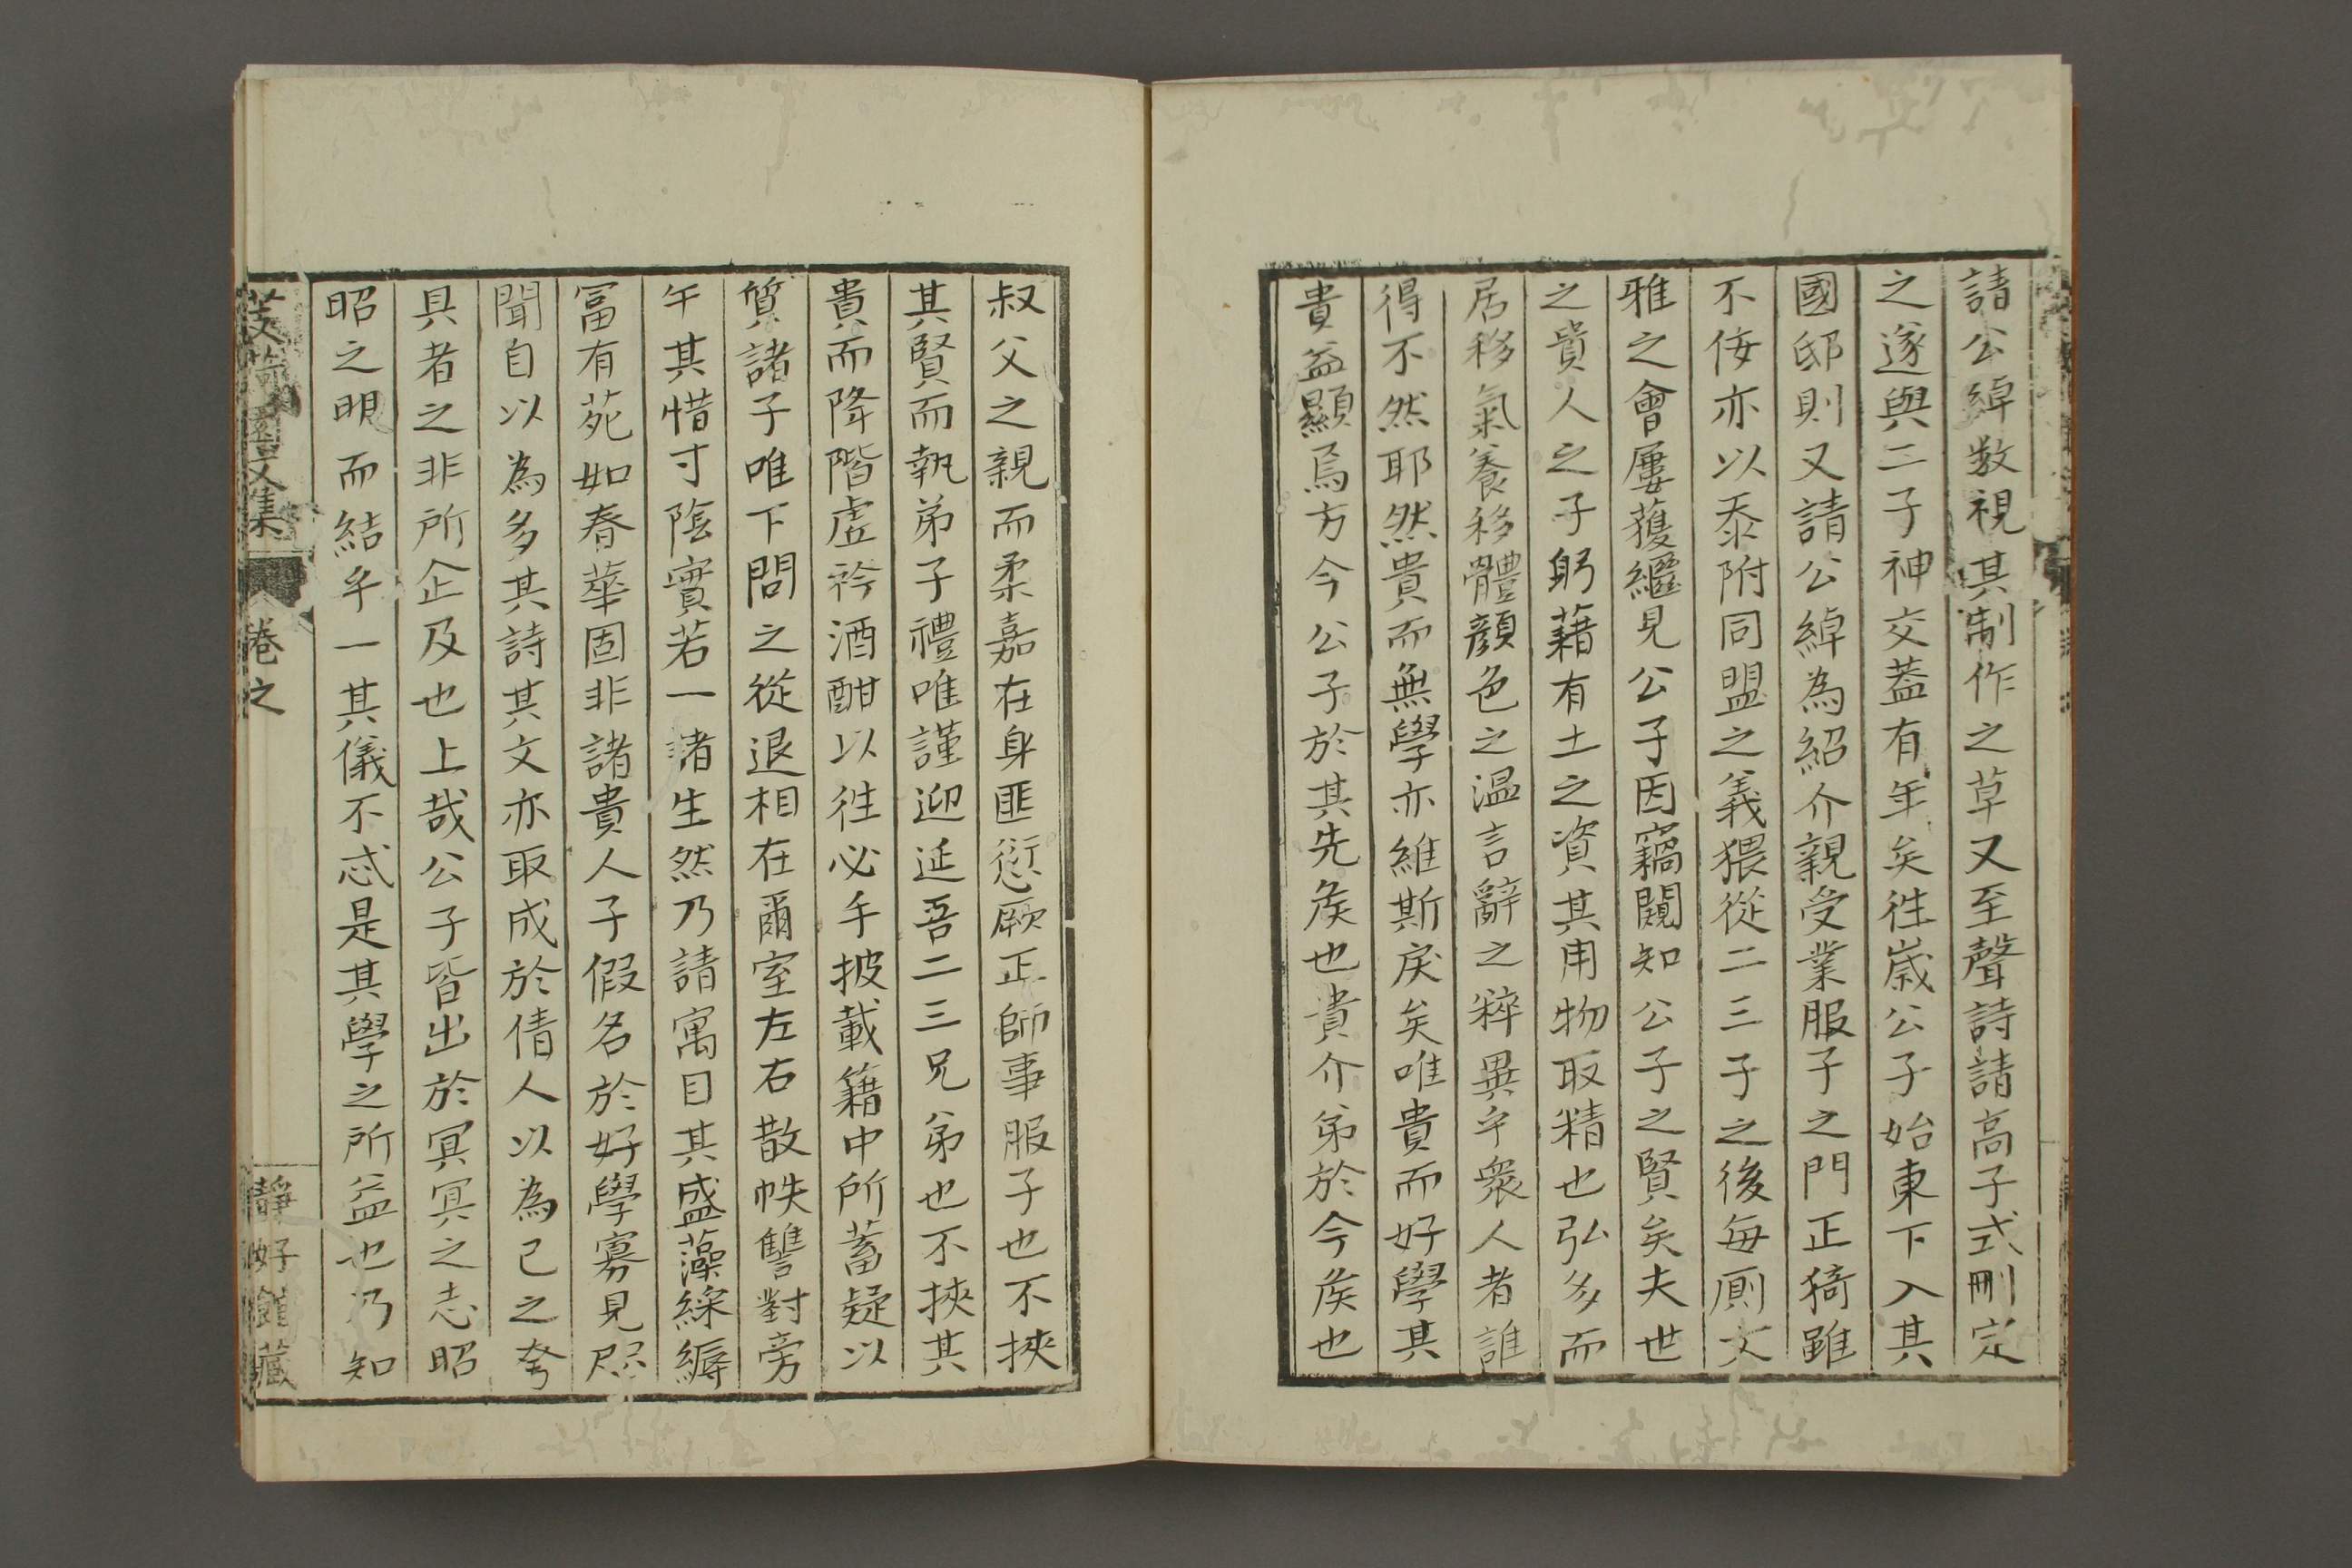 請公綽数視其制作之草又至聲詩請高子式刪定
之遂與二子神交蓋有年矣徃歲公子始東下入其
國邸則又請公綽為紹介親受業服子之門正猗雖
不佞亦以忝附同盟之義猥從二三子之後毎厠文
雅之會屢獲繼見公子因竊閲知公子之賢矣夫世
之貴人之子躬藉有土之資其用物取精也弘多而
居移氣養移體顔色之温言辭之粹異乎衆人者誰
得不然耶然貴而無學亦維斯戾矣唯貴而好學其
貴益顯焉方今公子於其先矦也貴介弟於今矦也
叔父之親而柔嘉在身匪愆厥正師事服子也不挾
其賢而執弟子禮唯謹迎延吾二三兄弟也不挾其
貴而降階虚衿酒酣以徃必手披載籍中所蓄疑以
質諸子唯下問之從退相在爾室左右散帙讐對旁
午其惜寸陰實若一諸生然乃請寓目其盛藻綵縟
冨有苑如春華固非諸貴人子假名於好學寡見尽
聞自以為多其詩其文亦取成於倩人以為己之夸
具者之非所企及也上哉公子皆出於冥冥之志昭
昭之明而結乎一其儀不忒是其學之所益也乃知
園文集 卷之
靜好館藏